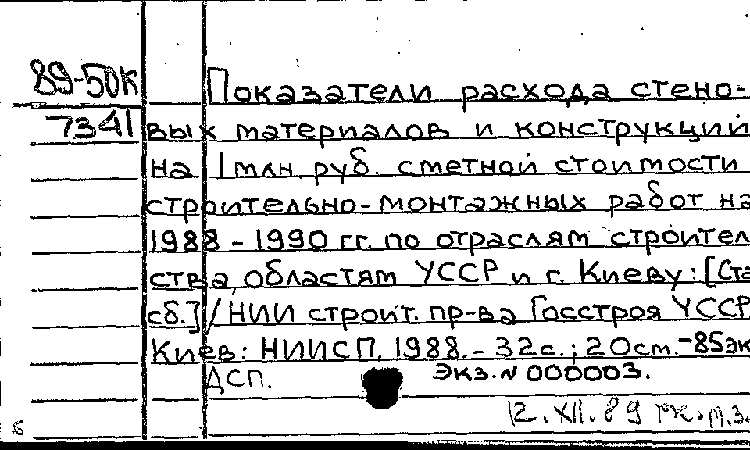 89-50К
7341
Показатели расхода стено-
вых материалов и конструкций
на 1 млн. руб. сметной стоимости
строительно-монтажных работ на
1988-1990 гг. по отраслям строитель
ства, областям УССР и г. Киеву: [Ста
сб.] / НИИ строит. пр-ва Госстроя УССР
Киев: НИИСП, 1988. - 32 с.; 20 см. - 85 эк
ДСП. Экз. N 000003.
12.XII.89